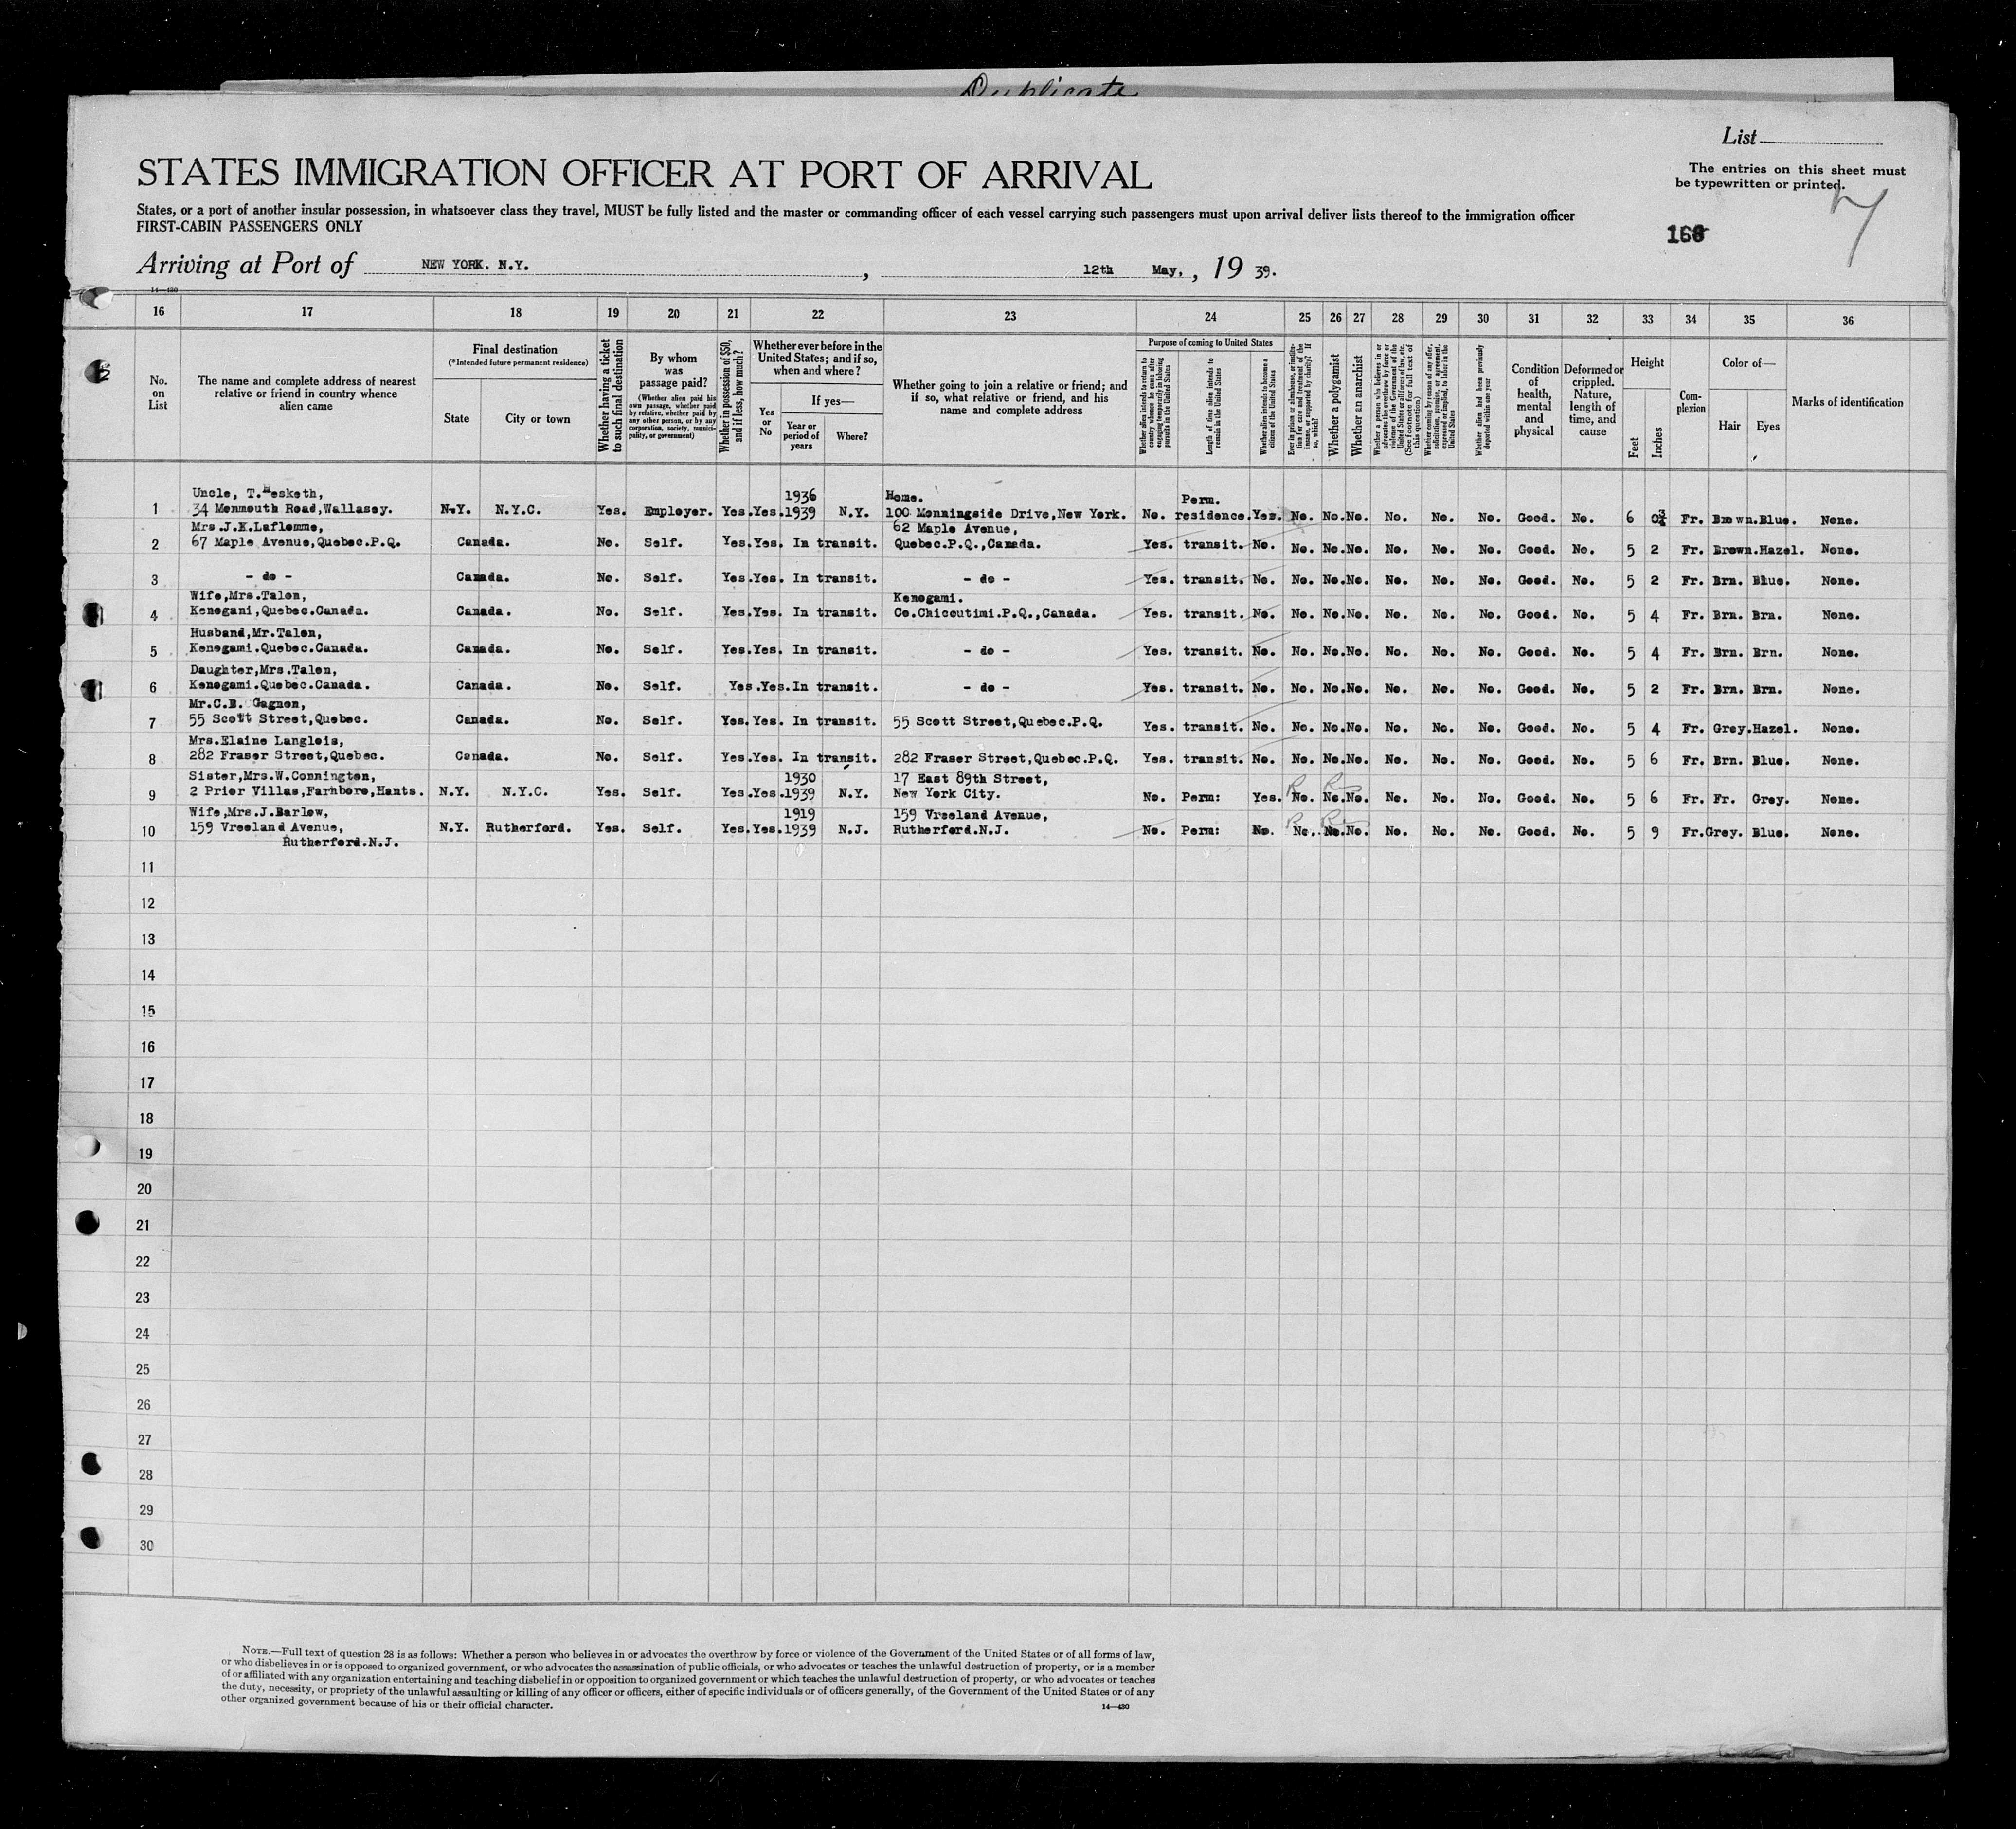 Duplicate
List
STATES IMMIGRATION OFFICER AT PORT OF ARRIVAL
The entries on this sheet must
be typewritten or printed.
States, or a port of another insular possession, in whatsoever class they travel, MUST be fully listed and the master or commanding officer of each vessel carrying such passengers must upon arrival deliver lists thereof to the immigration officer
FIRST-CABIN PASSENGERS ONLY
Arriving at Port of NEW YORK. N.Y. , 12th May, , 19 39.
14—430
16 17 18 19 20 21 22 23 24 25 26 27 28 29 30 31 32 33 34 35 36
No. on List
The name and complete address of nearest relative or friend in country whence alien came
Final destination
(*Intended future permanent residence)
State
City or town
Whether having a ticket to such final destination
By whom was passage paid?
(Whether alien paid his own passage, whether paid by relative, whether paid by any other person, or by any corporation, society, municipality, or government)
Whether in possession of $50, and if less, how much?
Whether ever before in the United States; and if so, when and where?
Yes or No
If yes—
Year or period of years
Where?
Whether going to join a relative or friend; and if so, what relative or friend, and his name and complete address
Purpose of coming to United States
Whether alien intends to return to country whence he came after engaging temporarily in laboring pursuits in the United States
Length of time alien intends to remain in the United States
Whether alien intends to become a citizen of the United States
Ever in prison or almshouse, or institution for care and treatment of the insane, or supported by charity? If so, which?
Whether a polygamist
Whether an anarchist
Whether a person who believes in or advocates the overthrow by force or violence of the Government of the United States or all forms of law, etc. (See footnote for full text of this question)
Whether coming by reason of any offer, solicitation, promise, or agreement, expressed or implied, to labor in the United States
Whether alien had been previously deported within one year
Condition of health, mental and physical
Deformed or crippled. Nature, length of time, and cause
Height
Feet
Inches
Complexion
Color of—
Hair
Eyes
Marks of identification
Uncle, T.Hesketh, 1936 Home. Perm.
1 34 Monmouth Road,Wallasey. N.Y. N.Y.C. Yes. Employer. Yes. Yes. 1939 N.Y. 100 Morningside Drive,New York. No. residence. Yes. No. No. No. No. No. No. Good. No. 6 0¾ Fr. Brown. Blue. None.
Mrs.J.K.Laflemme, 62 Maple Avenue,
2 67 Maple Avenue,Quebec.P.Q. Canada. No. Self. Yes. Yes. In transit. Quebec.P.Q.,Canada. Yes. transit. No. No. No. No. No. No. No. Good. No. 5 2 Fr. Brown. Hazel. None.
3 - do - Canada. No. Self. Yes. Yes. In transit. - do - Yes. transit. No. No. No. No. No. No. No. Good. No. 5 2 Fr. Brn. Blue. None.
Wife,Mrs.Talon, Kenogami.
4 Kenogani,Quebec.Canada. Canada. No. Self. Yes. Yes. In transit. Co.Chicoutimi.P.Q.,Canada. Yes. transit. No. No. No. No. No. No. No. Good. No. 5 4 Fr. Brn. Brn. None.
Husband,Mr.Talon,
5 Kenogami.Quebec.Canada. Canada. No. Self. Yes. Yes. In transit. - do - Yes. transit. No. No. No. No. No. No. No. Good. No. 5 4 Fr. Brn. Brn. None.
Daughter,Mrs.Talon,
6 Kenogami.Quebec.Canada. Canada. No. Self. Yes. Yes. In transit. - do - Yes. transit. No. No. No. No. No. No. No. Good. No. 5 2 Fr. Brn. Brn. None.
Mr.C.B. Gagnon,
7 55 Scott Street,Quebec. Canada. No. Self. Yes. Yes. In transit. 55 Scott Street,Quebec.P.Q. Yes. transit. No. No. No. No. No. No. No. Good. No. 5 4 Fr. Grey. Hazel. None.
Mrs.Elaine Langlois,
8 282 Fraser Street,Quebec. Canada. No. Self. Yes. Yes. In transit. 282 Fraser Street,Quebec.P.Q. Yes. transit. No. No. No. No. No. No. No. Good. No. 5 6 Fr. Brn. Blue. None.
Sister,Mrs.W.Connington, 1930 17 East 89th Street,
9 2 Prior Villas,Farnboro,Hants. N.Y. N.Y.C. Yes. Self. Yes. Yes. 1939 N.Y. New York City. No. Perm: Yes. No. No. No. No. No. No. Good. No. 5 6 Fr. Fr. Grey. None.
Wife,Mrs.J.Barlow, 1919 159 Vreeland Avenue,
10 159 Vreeland Avenue, N.Y. Rutherford. Yes. Self. Yes. Yes. 1939 N.J. Rutherford.N.J. No. Perm: No. No. No. No. No. No. No. Good. No. 5 9 Fr. Grey. Blue. None.
Rutherford.N.J.
11
12
13
14
15
16
17
18
19
20
21
22
23
24
25
26
27
28
29
30
NOTE.—Full text of question 28 is as follows: Whether a person who believes in or advocates the overthrow by force or violence of the Government of the United States or of all forms of law,
or who disbelieves in or is opposed to organized government, or who advocates the assassination of public officials, or who advocates or teaches the unlawful destruction of property, or is a member
of or affiliated with any organization entertaining and teaching disbelief in or opposition to organized government or which teaches the unlawful destruction of property, or who advocates or teaches
the duty, necessity, or propriety of the unlawful assaulting or killing of any officer or officers, either of specific individuals or of officers generally, of the Government of the United States or of any
other organized government because of his or their official character.
14—430